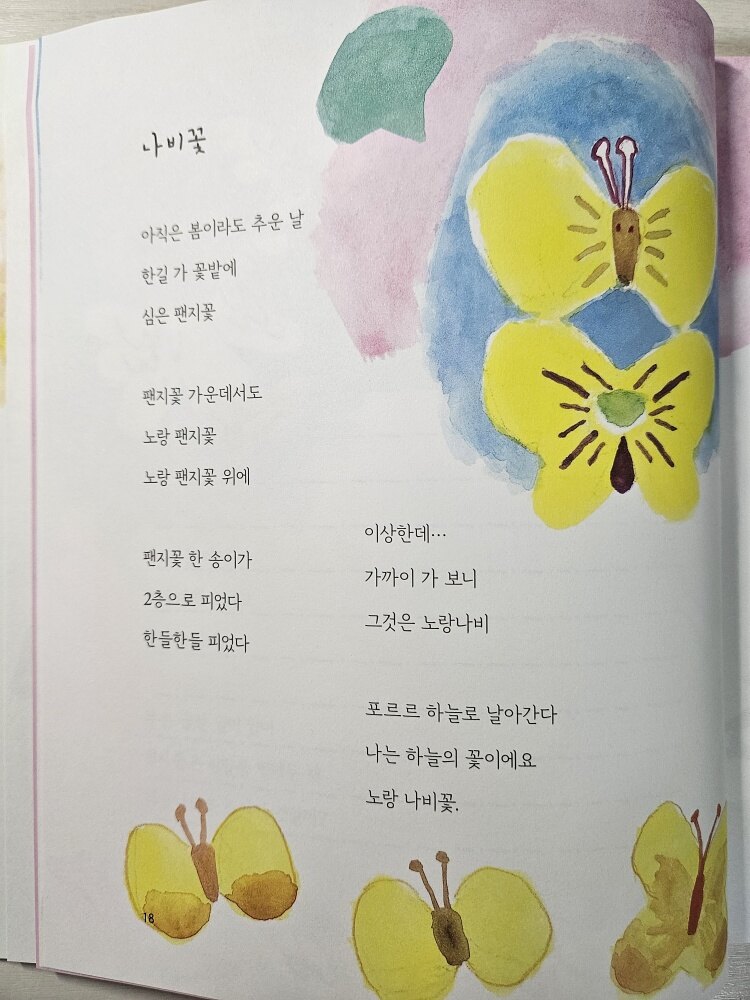 나비꽃
아직은 봄이라도 추운 날
한길 가 꽃밭에
심은 팬지꽃
팬지꽃 가운데서도
노랑 팬지꽃
노랑 팬지꽃 위에
팬지꽃 한 송이가
2층으로 피었다
한들한들 피었다
이상한데…
가까이 가 보니
그것은 노랑나비
포르르 하늘로 날아간다
나는 하늘의 꽃이에요
노랑 나비꽃.
18